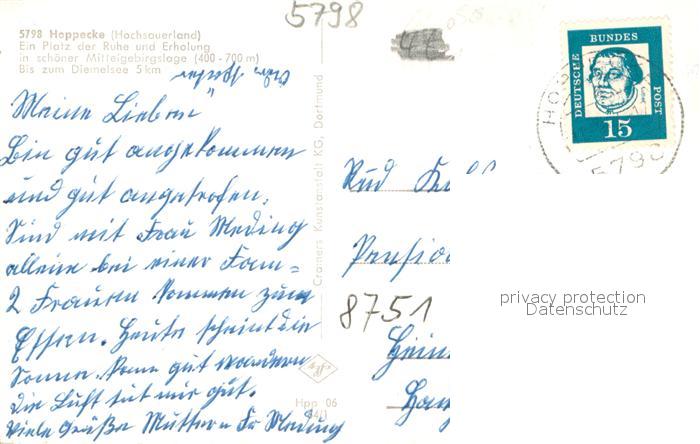 5798
5798 Hoppecke (Hochsauerland)
Ein Platz der Ruhe und Erholung
in schöner Mittelgebirgslage (400 - 700 m)
Bis zum Diemelsee 5 km
Meine Lieben
Bin gut angekommen
und gut angetrofen.
Sind mit Frau Meding
allein bei einer Fam=
2 Frauen kommen zum
Essen. Heute scheint die
Sonne. kann gut wandern
die Luft tut mir gut.
Viele Grüße Mutter u Fr Meding
Cramers Kunstanstalt KG, Dortmund
Hpp 06
DEUTSCHE
BUNDES
POST
15
HOP
5798
Rud
Pension
8751
Hein
privacy protection
Datenschutz